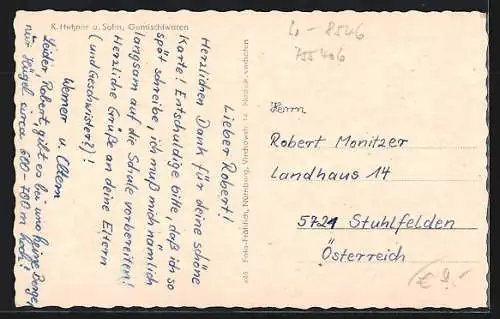 K. Hetzner u. Sohn, Gemischtwaren
Lieber Robert!
Herzlichen Dank für deine schöne
Karte! Entschuldige bitte, daß ich so
spät schreibe, ich muß mich nämlich
langsam auf die Schule vorbereiten!
Herzliche Grüße an deine Eltern
(und Geschwister?)!
Werner u. Eltern
Leider, Robert, gibt es bei uns keine Berge,
nur Hügel circa 600-700 m hoch!
Foto-Fröhlich, Nürnberg, Virchowstr.
verboten
Herrn
Robert Monitzer
Landhaus 14
5724 Stuhlfelden
Österreich
755406
€ 9.-